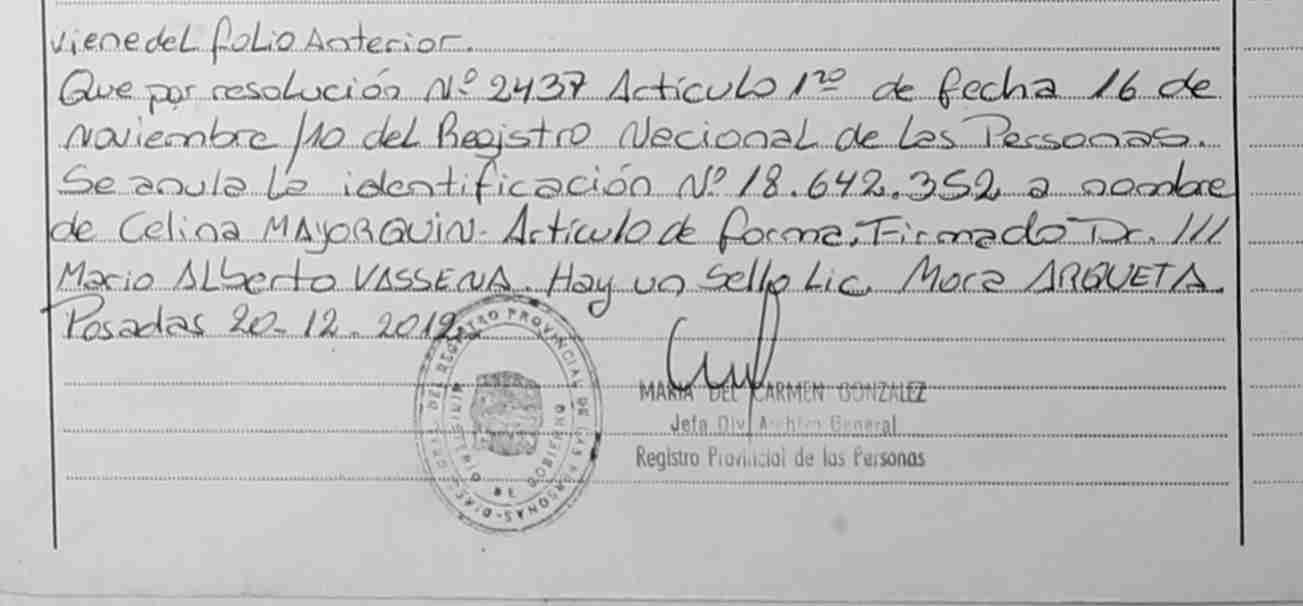 viene del folio Anterior.
Que por resolución Nº 2437 Artículo 1ro de fecha 16 de
noviembre /10 del Registro Nacional de las Personas.
Se anula la identificación Nº 18.642.352 a nombre
de Celina MAYORQUIN. Artículo de forma, Firmado Dr. ///
Mario ALberto VASSENA. Hay un Sello Lic. Mora ARGUETA.
Posadas 20-12-2012
DEL REGISTRO PROVINCIAL DE LAS PERSONAS
MINISTERIO DE GOBIERNO
MARIA DEL CARMEN GONZALEZ
Jefa Div Archivo General
Registro Provincial de las Personas